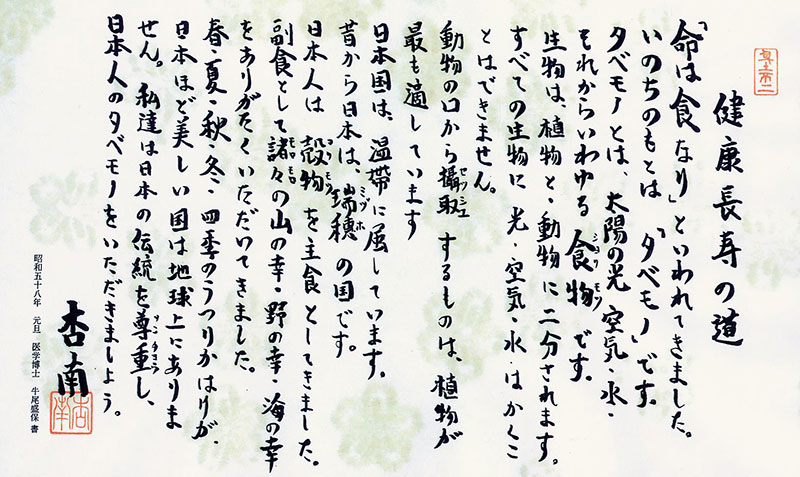 身土不二
健康長寿の道
「命は食なり」といわれてきました。
いのちのもとは「タベモノ」です。
タベモノとは、太陽の光 空気・水・
それからいわゆる食物です。
生物は、植物と・動物に二分されます。
すべての生物に 光・空気・水・はかくこ
とはできません。
動物の口から攝取するものは、植物が
最も適しています
日本国は、温帯に属しています。
昔から日本は、瑞穂の国です。
日本人は 穀物を主食としてきました。
副食として諸々の山の幸・野の幸・海の幸
をありがたくいただいてきました。
春・夏・秋・冬、四季のうつりかはりが、
日本ほど美しい国は地球上にありま
せん。私達は日本の伝統を尊重し、
日本人のタベモノをいただきましょう。
杏南
昭和五十八年 元旦 医学博士 牛尾盛保 書